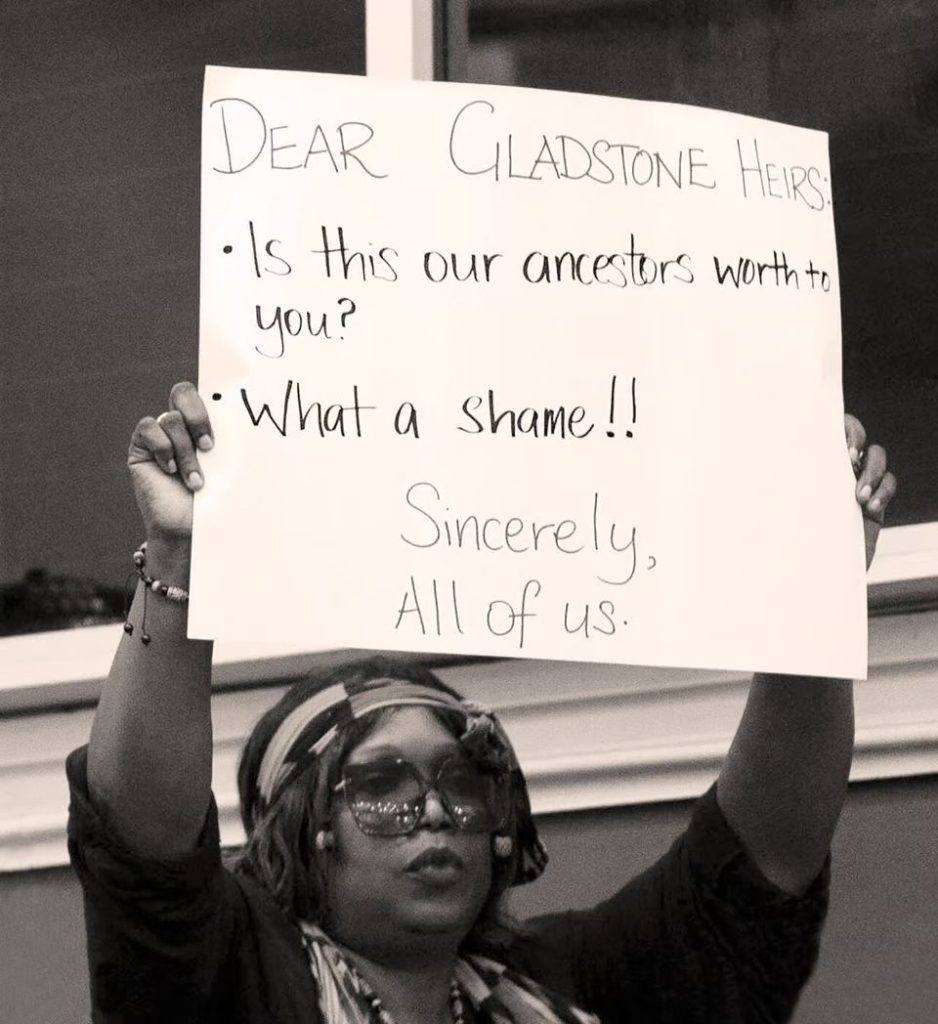 DEAR GLADSTONE HEIRS:
• Is this our ancestors worth to
you?
• What a shame!!
Sincerely,
All of us.